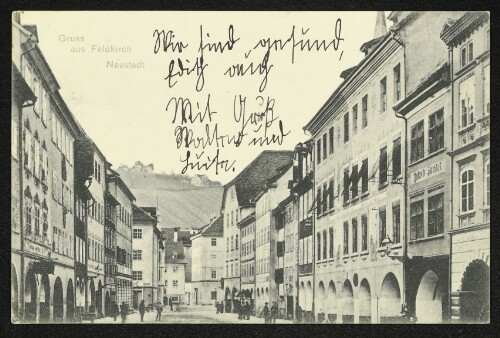 Gruss
aus Feldkirch
Neustadt
Wir sind gesund,
Edith auch
Mit Gruß
und
Luise.